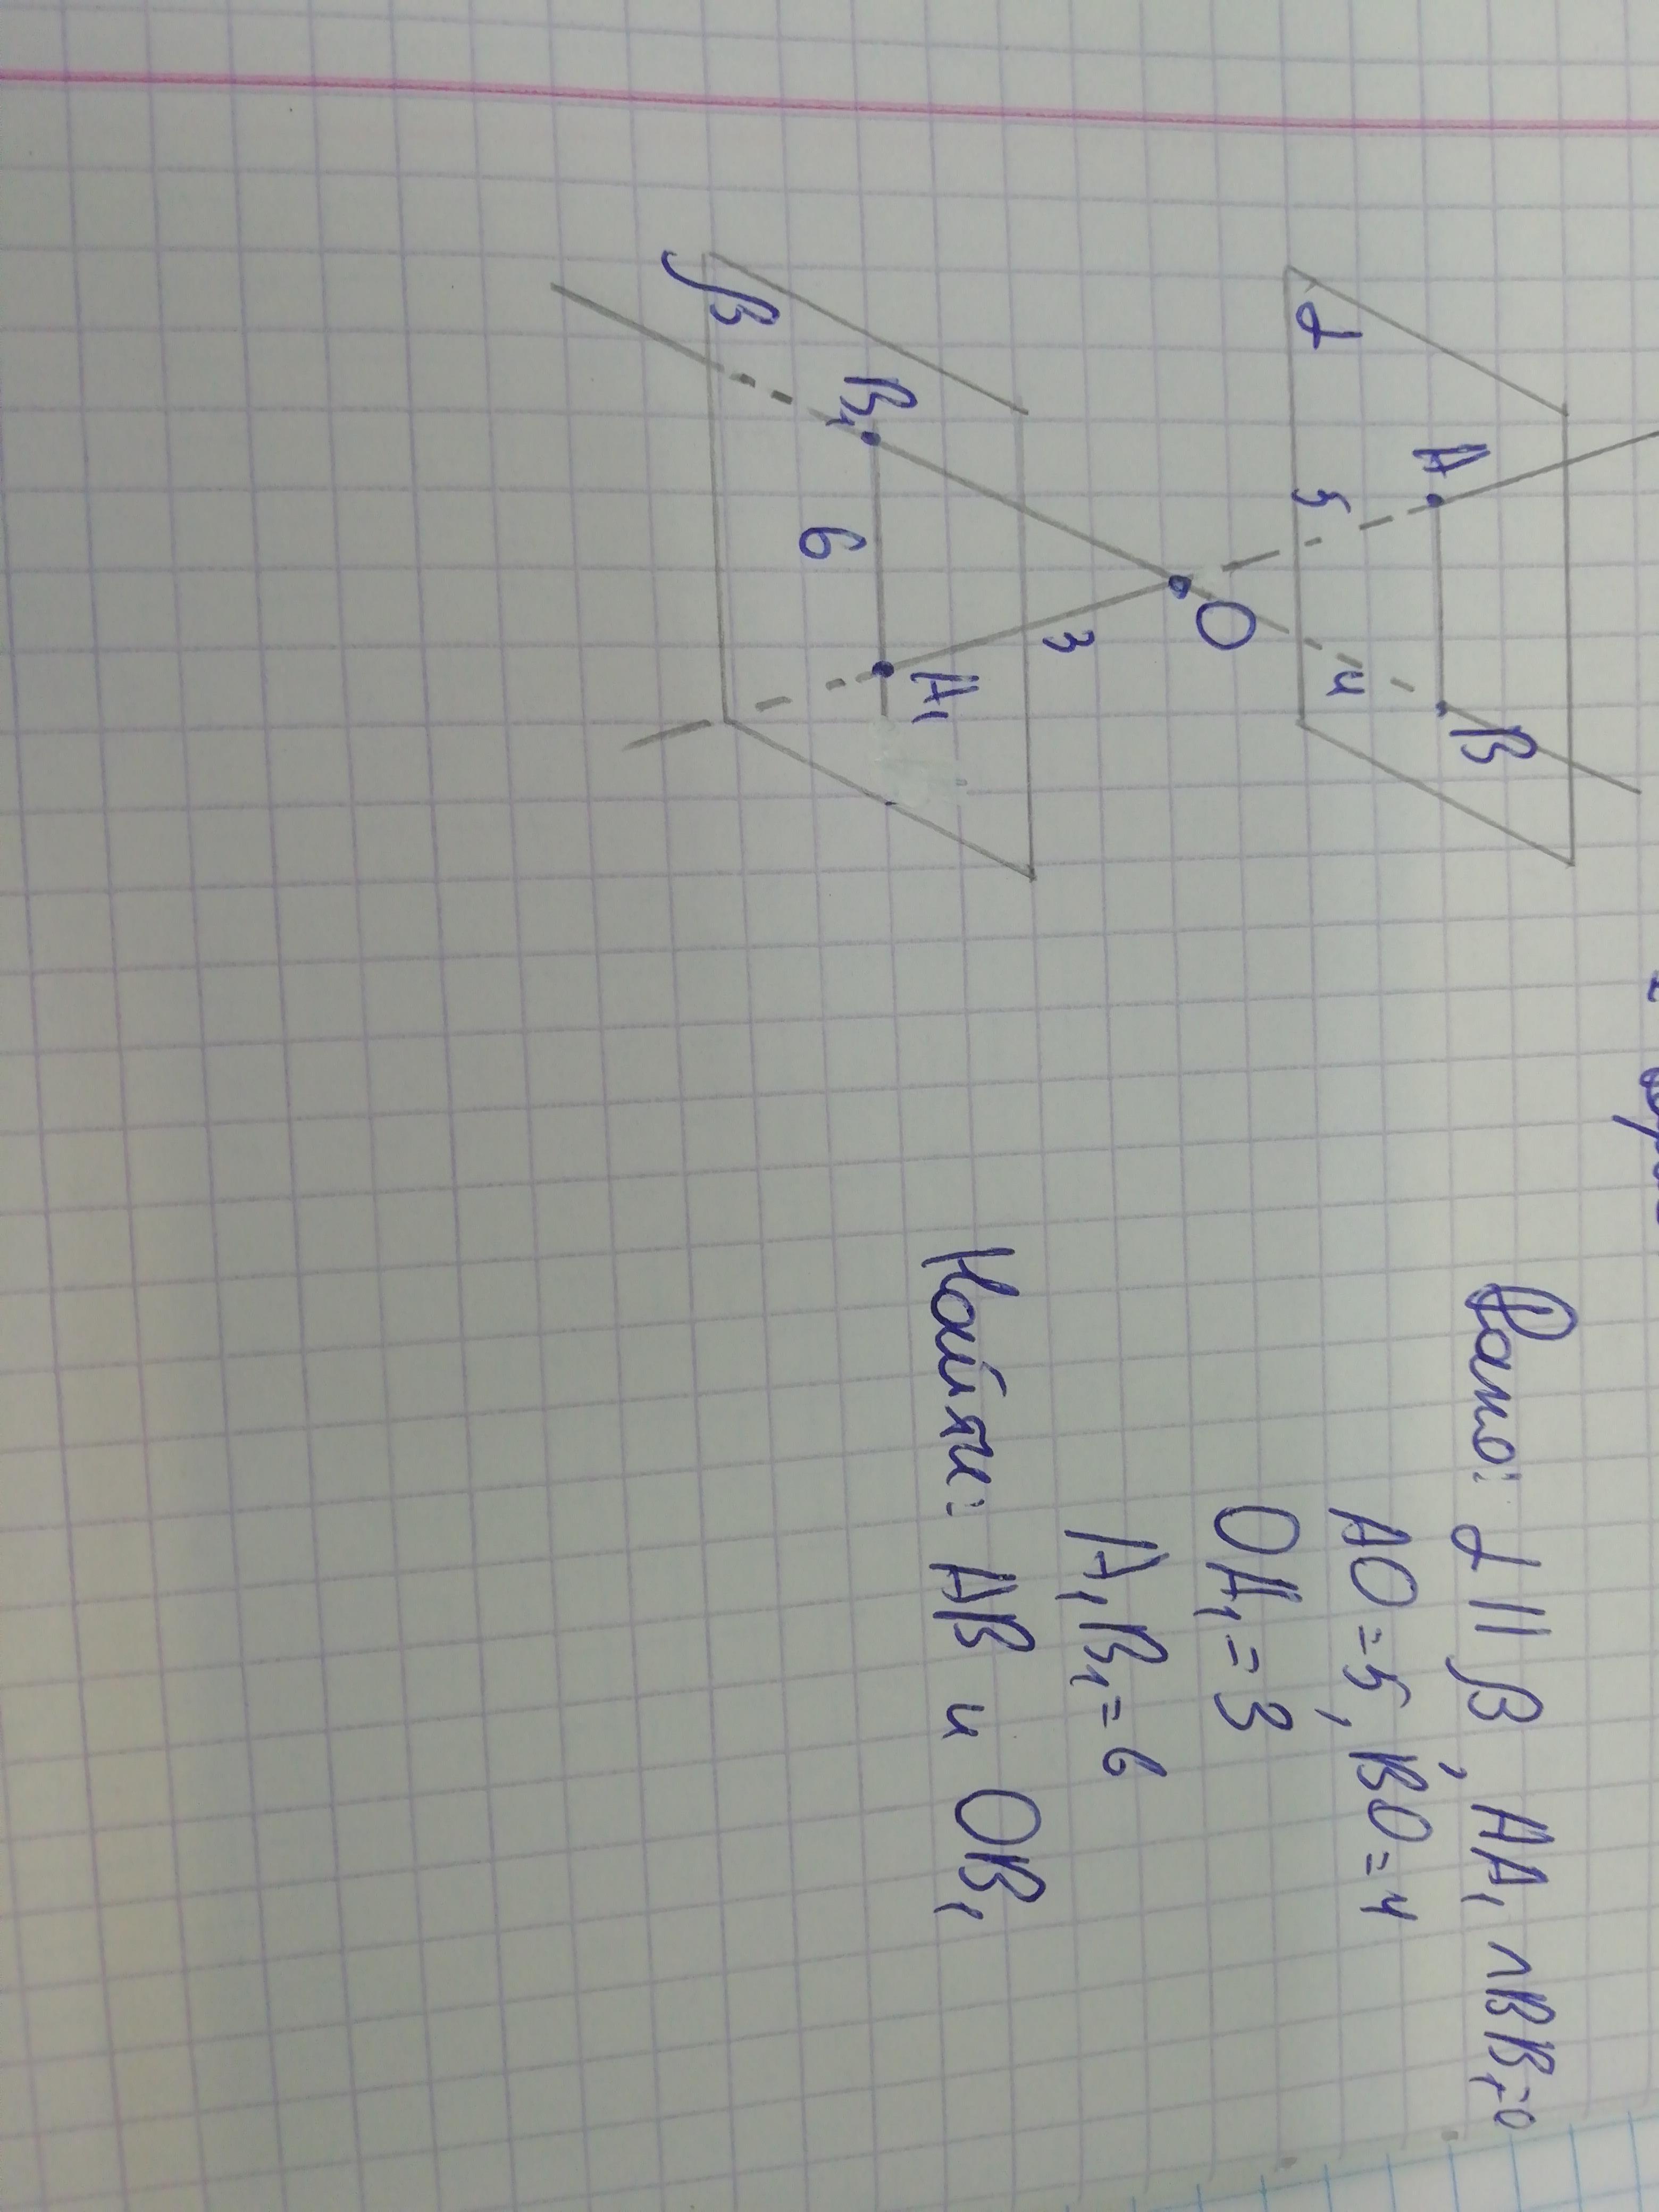 Дано: α || β, AA₁ ∩ BB₁ = O
AO = 5, BO = 4
OA₁ = 3
A₁B₁ = 6
Найти: AB и OB₁
α
A
B
5
4
O
3
A₁
B₁
6
β